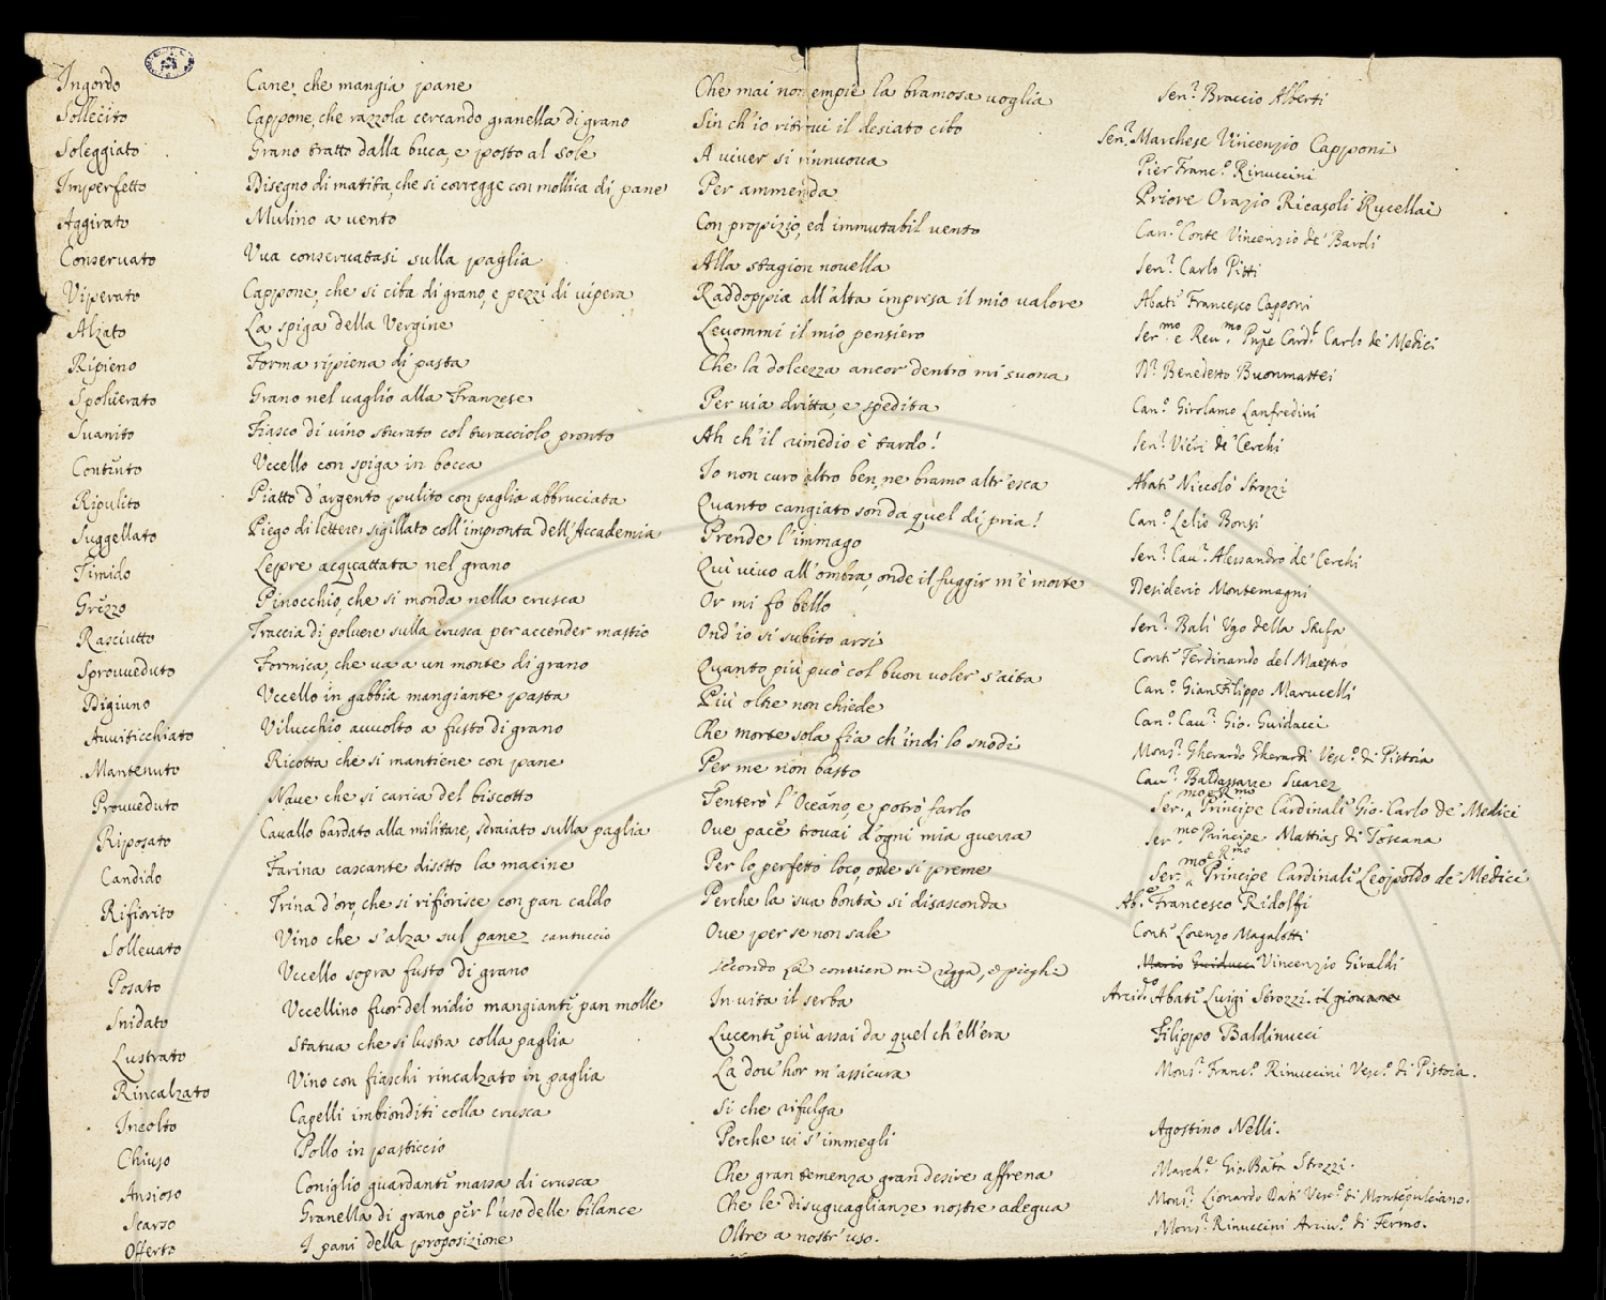 Ingordo Cane, che mangia pane Che mai non empie la bramosa uoglia Sen.r Braccio Alberti
Sollecito Cappone, che razzola cercando granella di grano Sin ch'io ritroui il desiato cibo Sen.r Marchese Vincenzio Capponi
Soleggiato Grano tratto dalla buca, e posto al sole A uiuer si rinnuoua Pier Franc.o Rinuccini
Imperfetto Disegno di matita, che si corregge con mollica di pane Per ammenda Priore Orazio Ricasoli Rucellai
Aggirato Mulino a uento Con propizio, ed immutabil uento Can.o Conte Vincenzio de' Bardi
Conseruato Vua conseruatasi sulla paglia Alla stagion nouella Sen.r Carlo Pitti
Viperato Cappone, che si ciba di grano, e pezzi di uipera Raddoppia all'alta impresa il mio ualore Abate Francesco Capponi
Alzato La spiga della Vergine Leuommi il mio pensiero Ser.mo e Reu.mo Pñpe Card.l Carlo de' Medici
Ripieno Forma ripiena di pasta Che la dolcezza ancor dentro mi suona D.r Benedetto Buonmattei
Spoluerato Grano nel uaglio alla Franzese Per uia dritta, e spedita Can.o Girolamo Lanfredini
Suanito Fiasco di uino sturato col turacciolo pronto Ah ch'il rimedio è tardo! Sen.r Vieri de' Cerchi
Contento Vccello con spiga in bocca Io non curo altro ben, ne bramo altr'esca Abate Niccolò Strozzi
Ripulito Piatto d'argento pulito con paglia abbruciata Quanto cangiato son da quel di pria! Can.o Lelio Bonsi
Suggellato Piego di lettere sigillato coll'impronta dell'Accademia Prende l'immago Sen.r Cau.r Alessandro de' Cerchi
Timido Lepre acquattata nel grano Quì uiuo all'ombra, onde il fuggir m'è morte Desiderio Montemagni
Grezzo Pinocchio, che si monda nella crusca Or mi fo bello Sen.r Balì Ugo della Stufa
Rasciutto Traccia di poluere sulla crusca per accender mastio Ond'io si subito arsi Conte Ferdinando del Maestro
Sprouueduto Formica, che ua a un monte di grano Quanto più può col buon uoler s'aita Can.o Gian Filippo Marucelli
Digiuno Vccello in gabbia mangiante pasta Più oltre non chiede Can.o Cau.r Gio. Guidacci
Auuiticchiato Vilucchio auuolto a fusto di grano Che morte sola fia ch'indi lo snodi Mons.r Gherardo Gherardi Vesc.o di Pistoia
Mantenuto Ricotta che si mantiene con pane Per me non basto Cau.r Baldassarre Suarez
Prouueduto Naue che si carica del biscotto Tenterò l'Oceano, e potrò farlo Ser.mo e R.mo Principe Cardinale Gio. Carlo de' Medici
Riposato Cauallo bardato alla militare, sdraiato sulla paglia Oue pace trouai d'ogni mia guerra Ser.mo Principe Mattias di Toscana
Candido Farina cascante disotto la macine Per lo perfetto loco, onde si preme Ser.mo e R.mo Principe Cardinale Leopoldo de' Medici
Rifiorito Trina d'oro, che si rifiorisce con pan caldo Perche la sua bontà si disasconda Ab.e Francesco Ridolfi
Solleuato Vino che s'alza sul pane cantuccio Oue per se non sale Conte Lorenzo Magalotti
Posato Vccello sopra fusto di grano secondo Là conuien mi regga, e pieghi Mario Guiducci Vincenzio Giraldi
Snidato Vccellino fuor del nidio mangiante pan molle In uita il serba Arcid.o Abate Luigi Strozzi. il giouane
Lustrato Statua che si lustra colla paglia Lucente più assai da quel ch'ell'era Filippo Baldinucci
Rincalzato Vino con fiaschi rincalzato in paglia La dou'hor m'assicura Mons.r Franc.o Rinuccini Vesc.o di Pistoia.
Incolto Capelli imbionditi colla crusca Si che rifulga
Chiuso Pollo in pasticcio Perche ui s'immegli Agostino Nelli.
Ansioso Coniglio guardante massa di crusca Che gran temenza gran desire affrena March.e Gio. Bãta Strozzi.
Scarso Granella di grano per l'uso delle bilance Che le disuguaglianze nostre adegua Mons.r Lionardo Dati Vesc.o di Montepulciano.
Offerto I pani della proposizione Oltre a nostr'uso. Mons.r Rinuccini Arciu.o di Fermo.